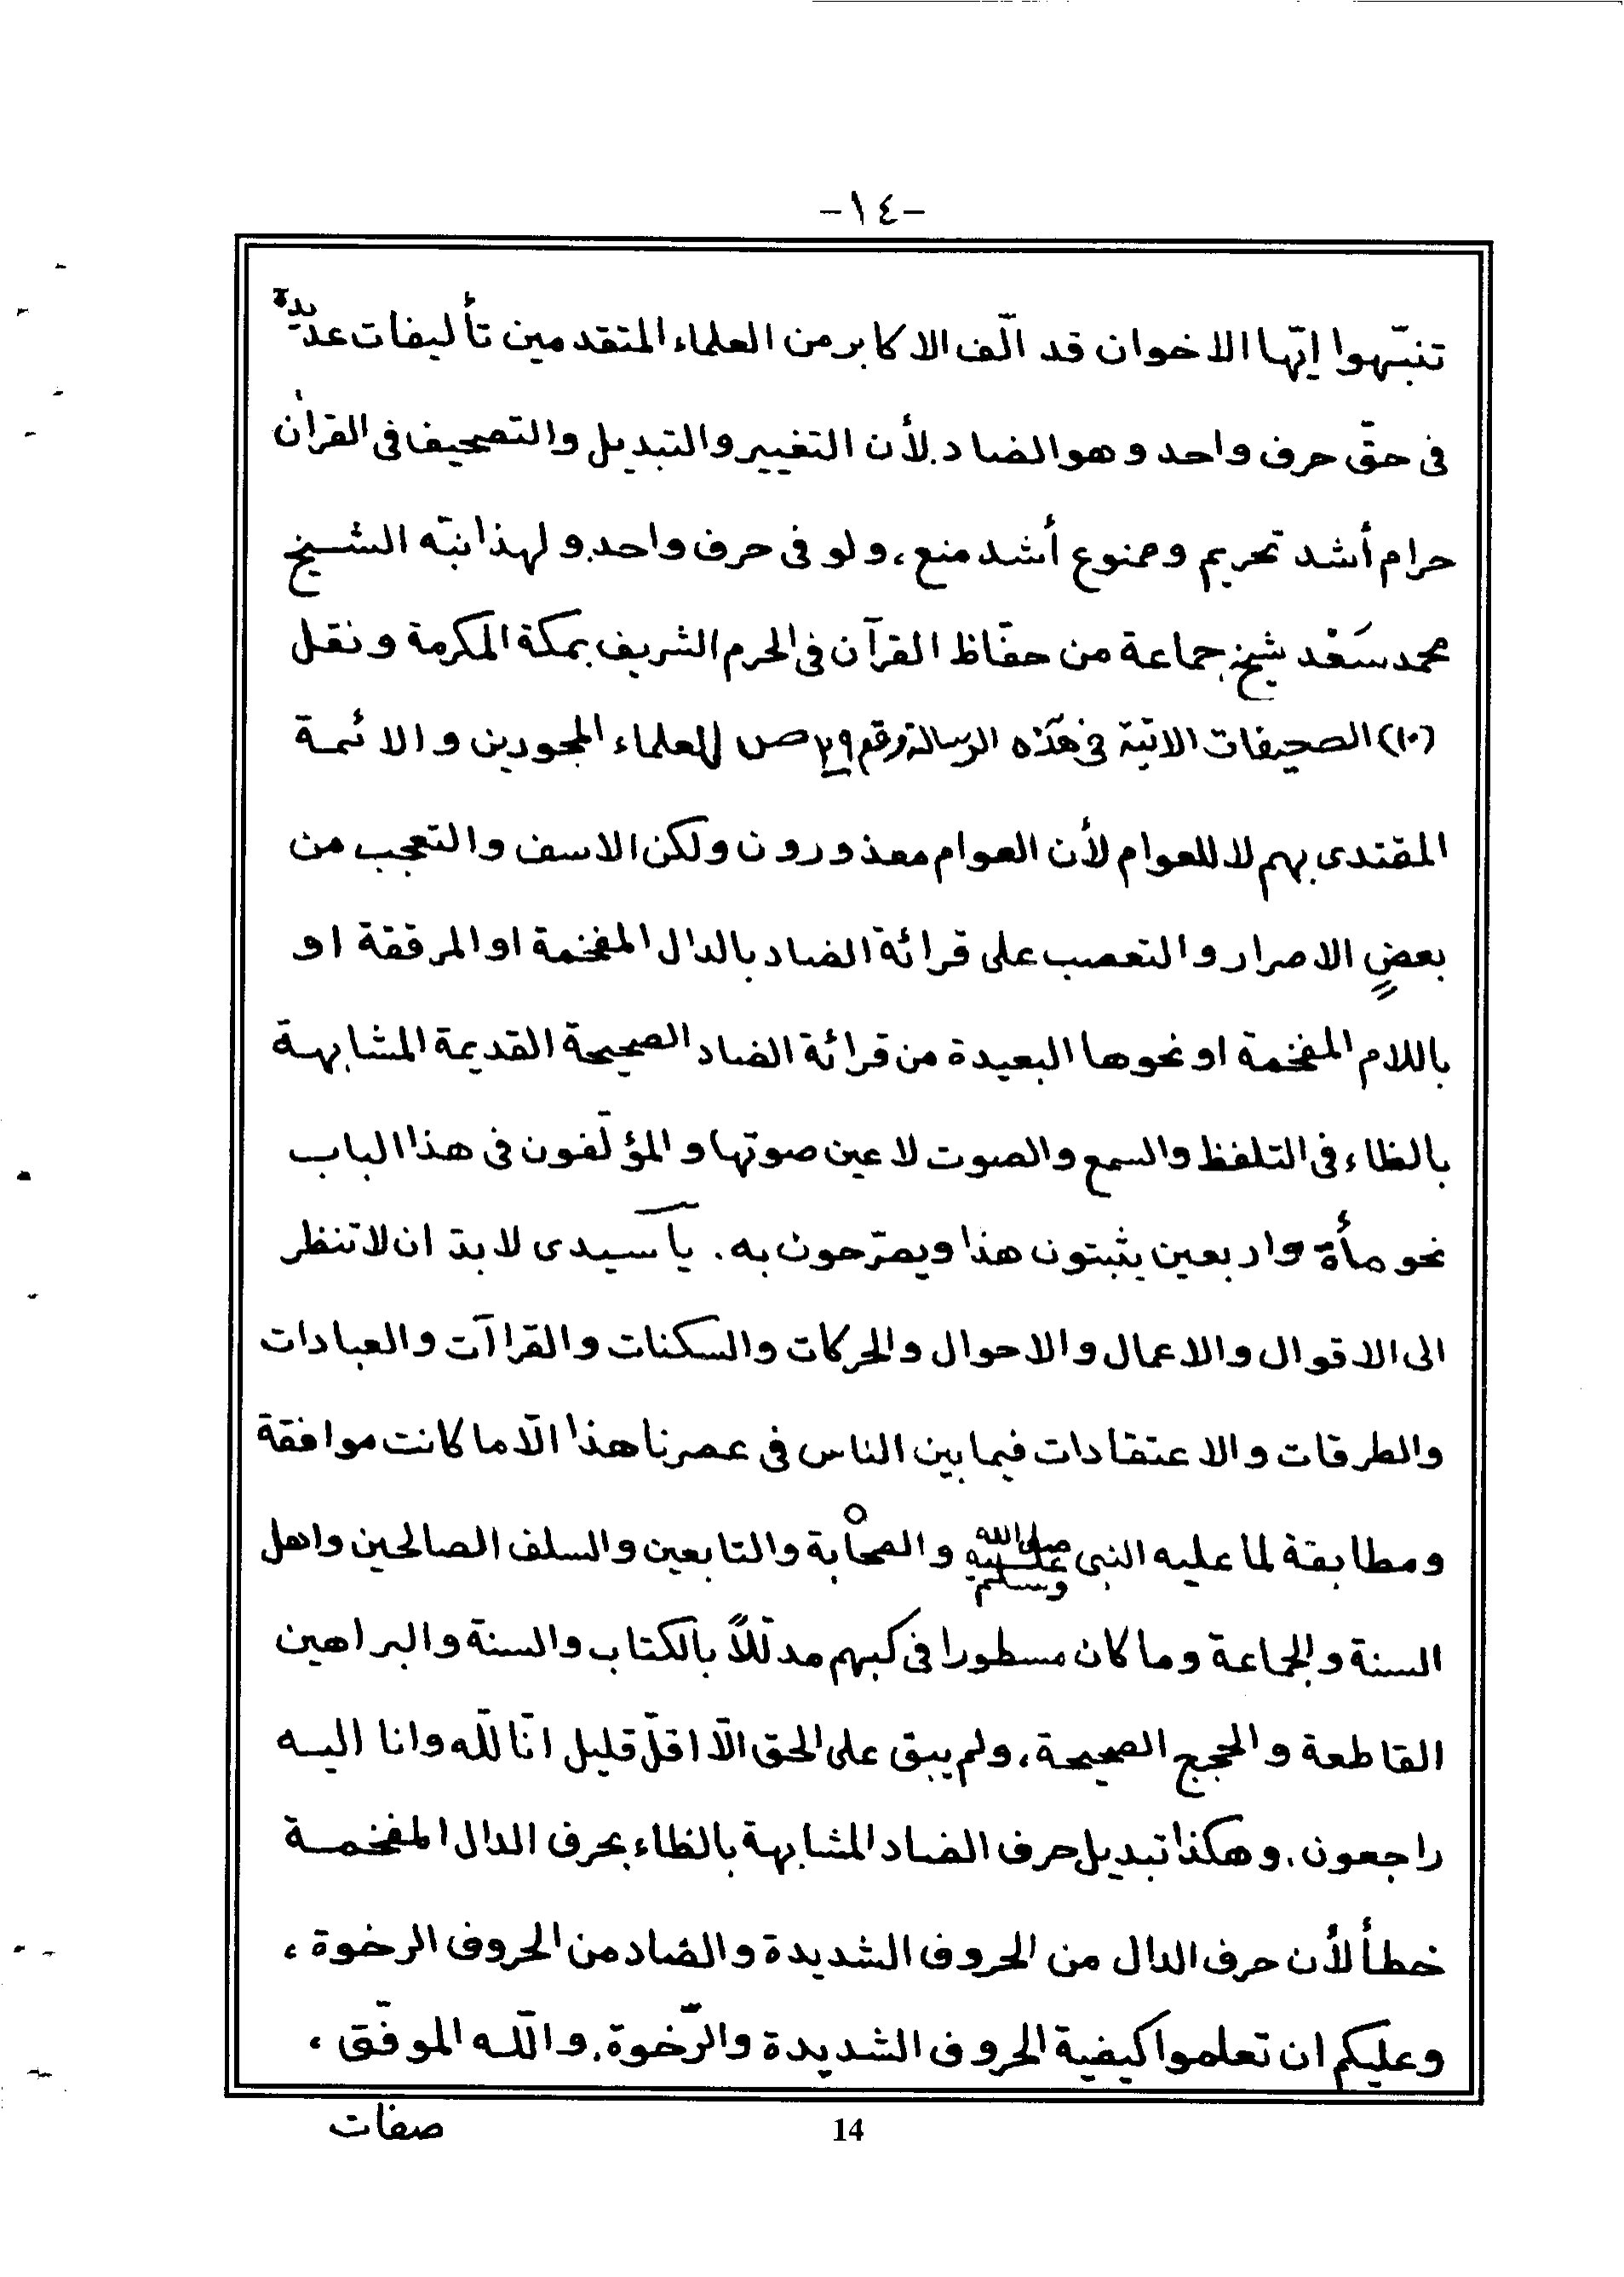 -١٤-
تنبّهوا ايّها الاخوان قد الّف الاكابر من العلماء المتقدمين تأليفات عديدة
فى حقّ حرف واحد وهو الضاد. لأن التغيير والتبديل والتصحيف فى القرآن
حرام أشد تحريم وممنوع أشد منع، ولو فى حرف واحد. ولهذا نبّه الشيخ
محمد سَعْد شيخ جماعة من حفّاظ القرآن فى الحرم الشريف بمكة المكرمة ونقل
(١٠) الصحيفات الاتية فى هذه الرسالة رقم ص للعلماء المجودين والائمة
المقتدى بهم لا للعوام لأن العوام معذورون ولكن الاسف والتعجب من
بعضٍ الاصرار والتعصب على قرائة الضاد بالدال المفخمة او المرققة او
باللام المفخمة او نحوها البعيدة من قرائة الضاد الصحيحة القديمة المشابهة
بالظاء فى التلفظ والسمع والصوت لا عين صوتها والمؤلّفون فى هذا الباب
نحو مأة واربعين يثبتون هذا ويصرّحون به. يا سيدى لابدّ ان لا تنظر
الى الاقوال والاعمال والاحوال والحركات والسكنات والقراآت والعبادات
والطرقات والاعتقادات فيما بين الناس فى عصرنا هذا الّا ما كانت موافقة
ومطابقة لما عليه النبى صلى الله عليه وسلم والصحابة والتابعين والسلف الصالحين واهل
السنة والجماعة وما كان مسطورا فى كبهم مدلّلاً بالكتاب والسنة والبراهين
القاطعة والحجج الصحيحة، ولم يبق على الحق الّا اقلّ قليل انّا لله وانا اليه
راجعون. وهكذا تبديل حرف الضاد المشابهة بالظاء بحرف الدال المفخمة
خطأ لأن حرف الدال من الحروف الشديدة والضاد من الحروف الرخوة،
وعليكم ان تعلموا كيفية الحروف الشديدة والرّخوة. والله الموفّق،
صفات
14